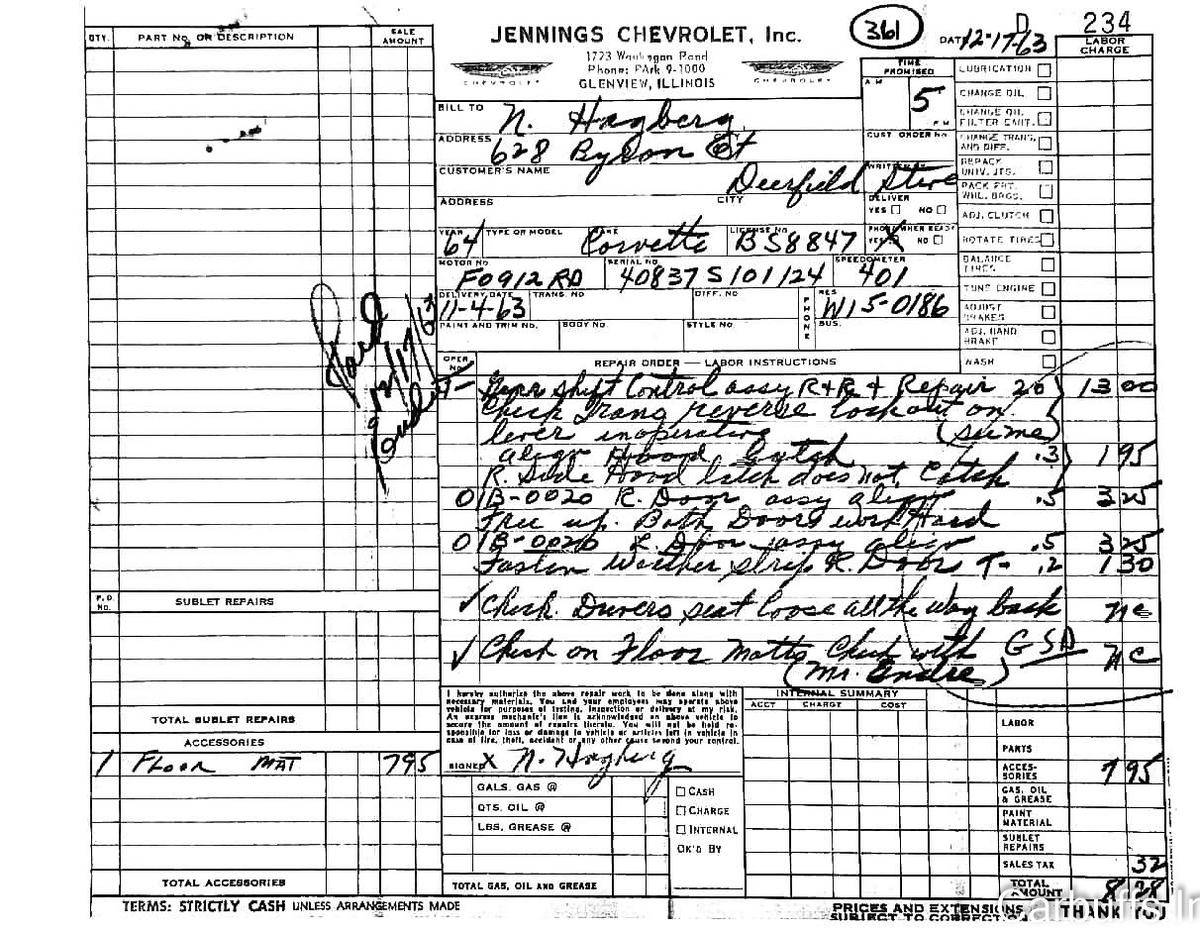 JENNINGS CHEVROLET, Inc.
1723 Waukegan Road
Phone: PArk 9-1000
GLENVIEW, ILLINOIS
CHEVROLET
CHEVROLET
361
D
234
DATE 12-17-63
QTY. PART No. OR DESCRIPTION SALE AMOUNT
LABOR CHARGE
TIME PROMISED
A M
5
P M
BILL TO N. Hagberg
ADDRESS 628 Byron Ct
CUST. ORDER No.
CUSTOMER'S NAME
Deerfield
WRITTEN BY
Steve
ADDRESS CITY
DELIVER
YES NO
YEAR 64 TYPE OR MODEL MAKE Corvette LICENSE No. BS8847
PHONE WHEN READY
YES X NO
MOTOR NO. F0912RD SERIAL NO. 40837S101124 SPEEDOMETER 401
DELIVERY DATE 11-4-63 TRANS. NO DIFF. NO
PHONE
RES. W15-0186
BUS.
PAINT AND TRIM NO. BODY NO. STYLE NO.
LUBRICATION
CHANGE OIL
CHANGE OIL FILTER CART.
CHANGE TRANS. AND DIFF.
REPACK UNIV. JTS.
PACK FRT. WHL. BRGS.
ADJ. CLUTCH
ROTATE TIRES
BALANCE TIRES
TUNE ENGINE
ADJUST BRAKES
ADJ. HAND BRAKE
WASH
OPER. No. REPAIR ORDER — LABOR INSTRUCTIONS
Gear Shift Control assy R+R + Repair 2.0 13 00
Check Trans reverse lockout on
lever inoperative (see me)
align Hood Latch .3 1 95
R. Side Hood latch does not Catch
01B-0020 R. Door assy align .5 3 25
Free up. Both Doors work Hard
01B-0020 L. Door assy align .5 3 25
Fasten Weather Strip R. Door T- .2 1 30
✓ Check Drivers seat loose all the way back NC
✓ Check on Floor Matts Check with GSA NC
(Mr.
Paid
12/17/63
P.O. NO. SUBLET REPAIRS
TOTAL SUBLET REPAIRS
ACCESSORIES
1 FLOOR MAT 7 95
TOTAL ACCESSORIES
I hereby authorize the above repair work to be done along with
necessary materials. You and your employees may operate above
vehicle for purposes of testing, inspection or delivery at my risk.
An express mechanic's lien is acknowledged on above vehicle to
secure the amount of repairs thereto. You will not be held re-
sponsible for loss or damage to vehicle or articles left in vehicle in
case of fire, theft, accident or any other cause beyond your control.
SIGNED X N. Hagberg
GALS. GAS @
QTS. OIL @
LBS. GREASE @
TOTAL GAS, OIL AND GREASE
CASH
CHARGE
INTERNAL
OK'D BY
INTERNAL SUMMARY
ACCT CHARGE COST
LABOR
PARTS
ACCES- SORIES 7 95
GAS, OIL & GREASE
PAINT MATERIAL
SUBLET REPAIRS
SALES TAX 32
TOTAL AMOUNT 8 28
TERMS: STRICTLY CASH UNLESS ARRANGEMENTS MADE
PRICES AND EXTENSIONS
SUBJECT TO CORRECTION
THANK YOU
Carbuffs In